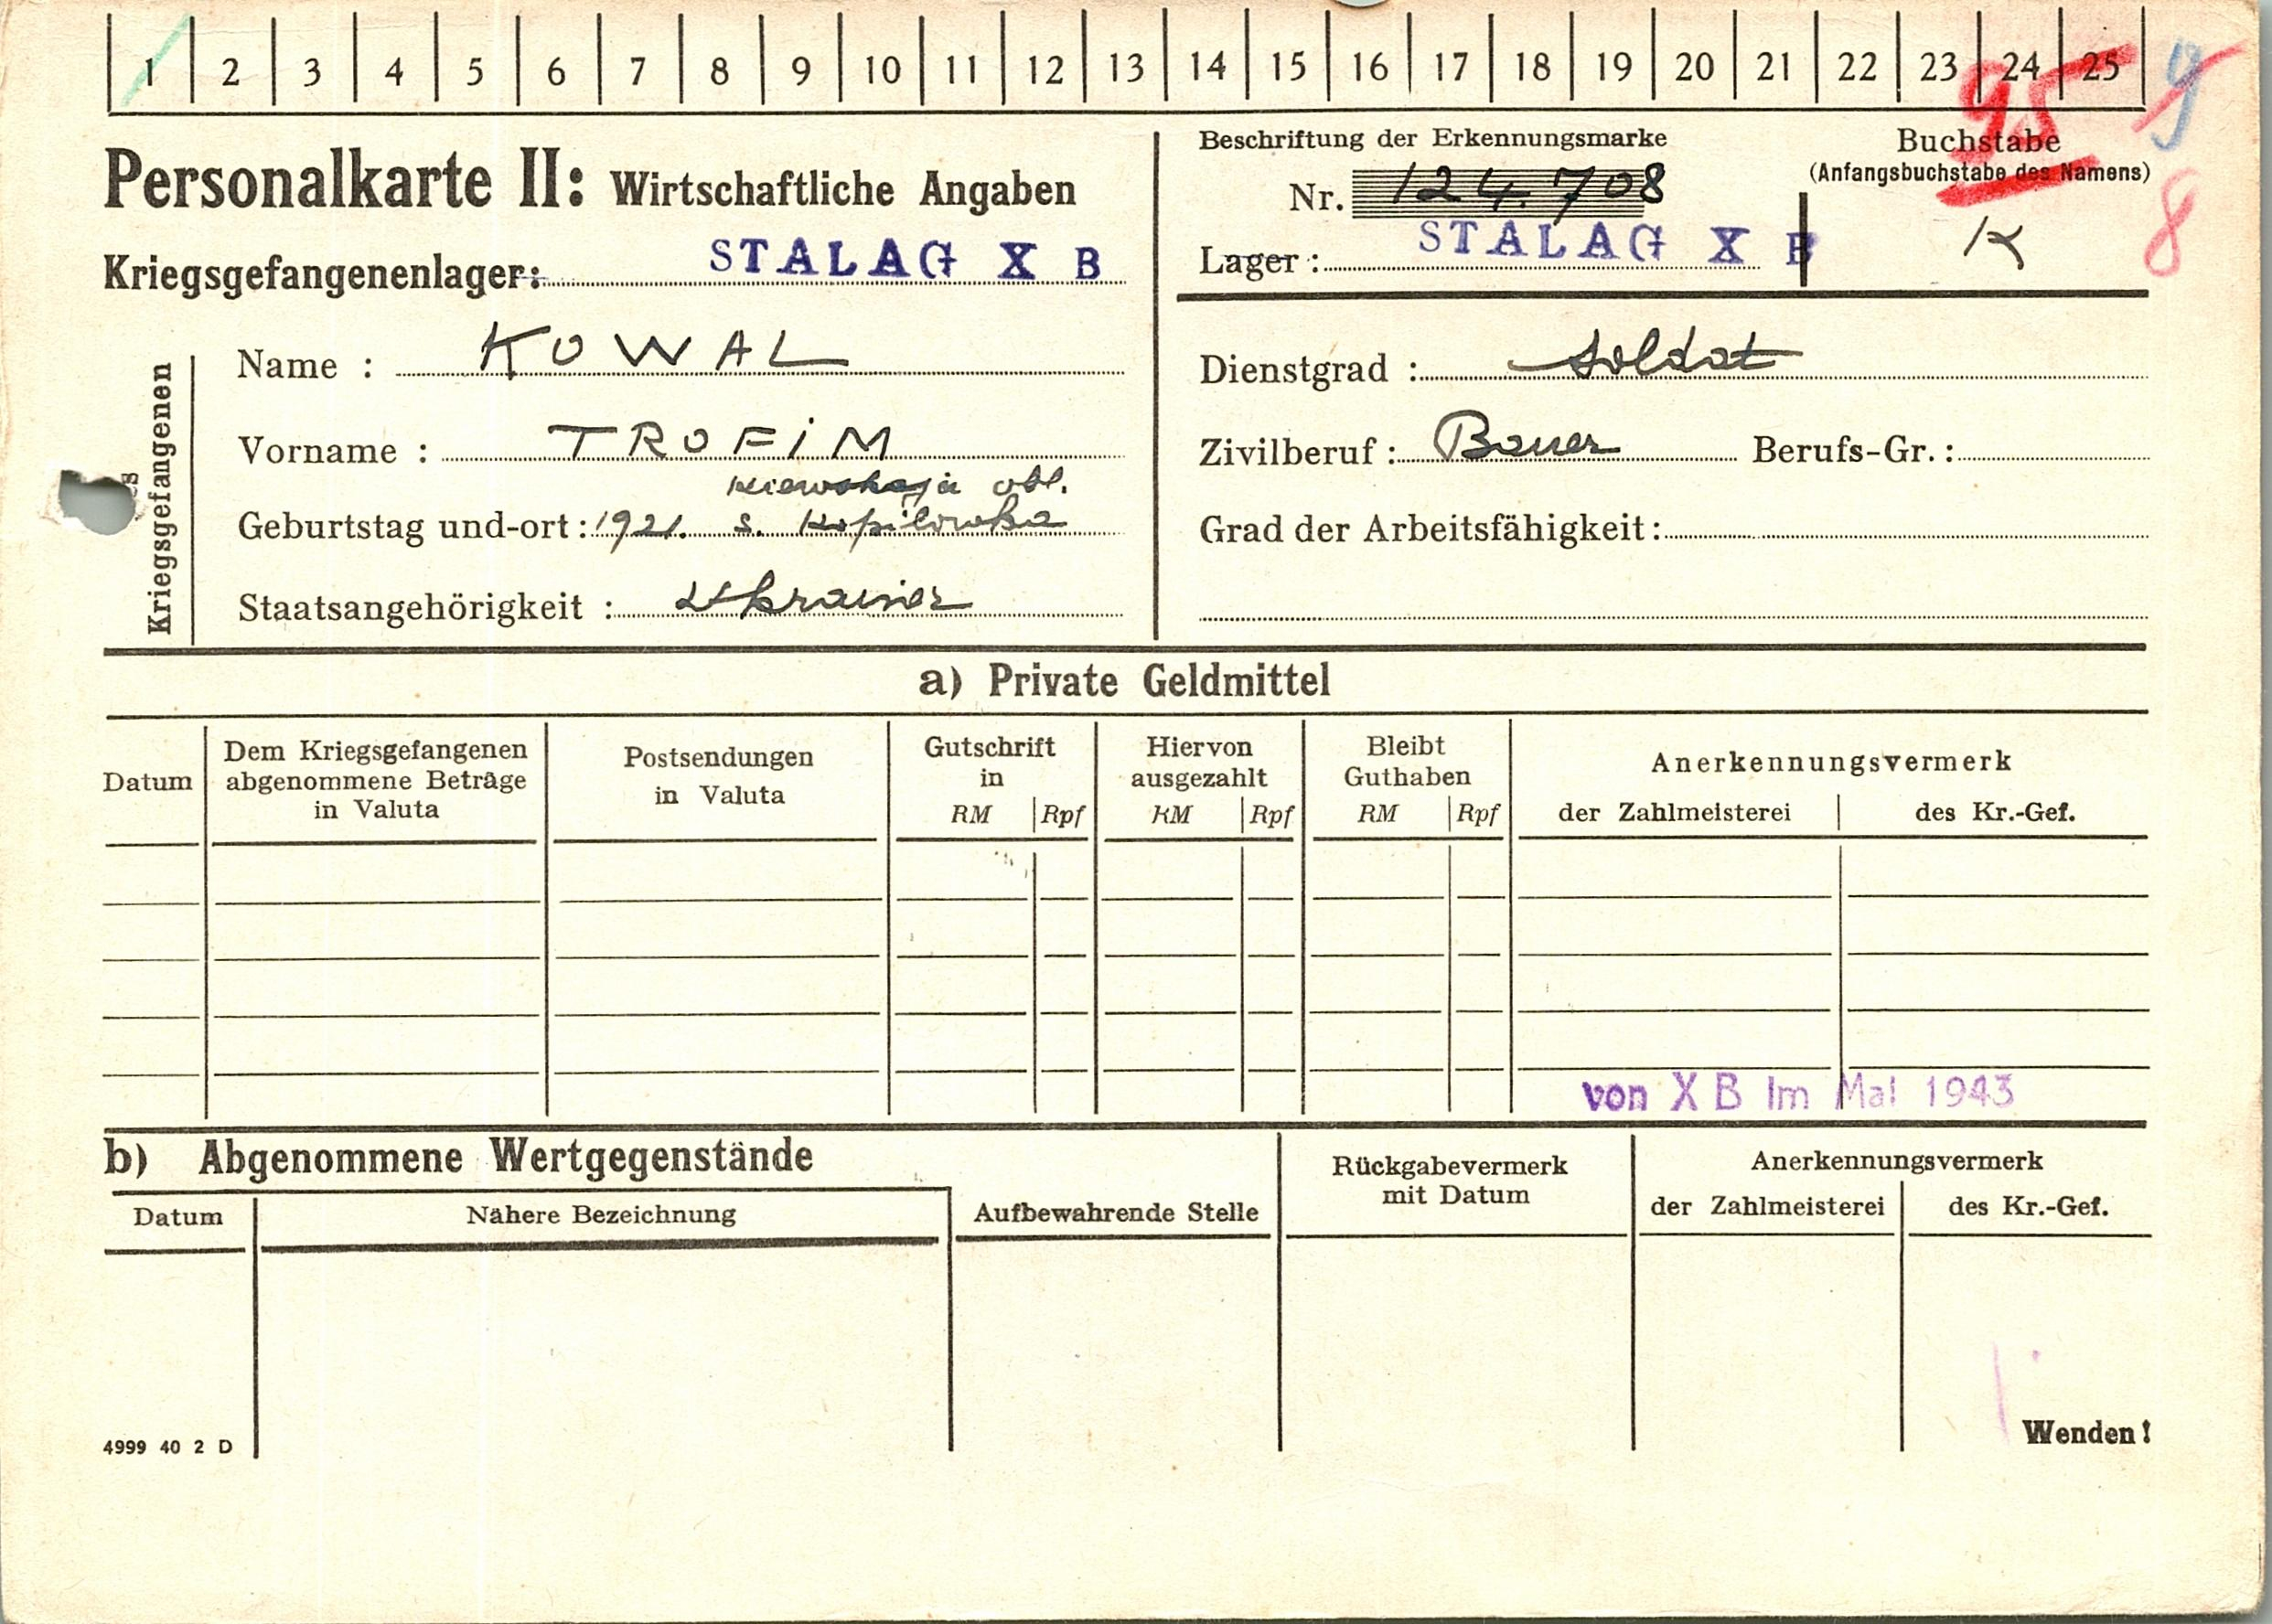 1 2 3 4 5 6 7 8 9 10 11 12 13 14 15 16 17 18 19 20 21 22 23 24 25 9
95
8
Personalkarte II: Wirtschaftliche Angaben
Kriegsgefangenenlager: STALAG X B
Beschriftung der Erkennungsmarke
Nr. 124.708
Lager: STALAG X B
Buchstabe
(Anfangsbuchstabe des Namens)
K
Kriegsgefangenen
Name : KOWAL
Vorname : TROFIM
Kiewskaja obl.
Geburtstag und-ort: 1921. s. Kopilowka
Staatsangehörigkeit : Ukrainer
Dienstgrad : Soldat
Zivilberuf : Bauer Berufs-Gr. :
Grad der Arbeitsfähigkeit:
a) Private Geldmittel
Datum
Dem Kriegsgefangenen
abgenommene Beträge
in Valuta
Postsendungen
in Valuta
Gutschrift
in
RM Rpf
Hiervon
ausgezahlt
RM Rpf
Bleibt
Guthaben
RM Rpf
Anerkennungsvermerk
der Zahlmeisterei des Kr.-Gef.
von X B im Mai 1943
b) Abgenommene Wertgegenstände
Datum Nähere Bezeichnung
Aufbewahrende Stelle
Rückgabevermerk
mit Datum
Anerkennungsvermerk
der Zahlmeisterei des Kr.-Gef.
4999 40 2 D
Wenden!